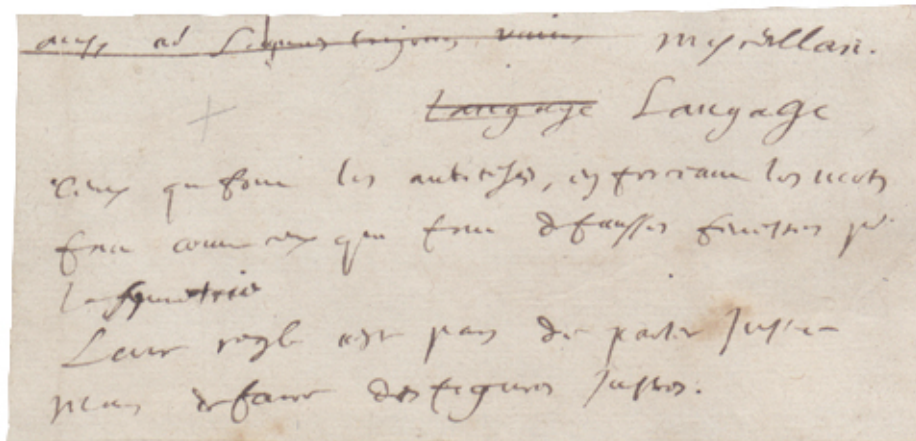 Miscellan.
Langage Langage
Ceux qui font les antitheses, en forceant les mots
font comme ceux qui font de fausses fenestres pr
la symetrie
Leur regle n'est pas de parler juste
mais de faire des figures justes.